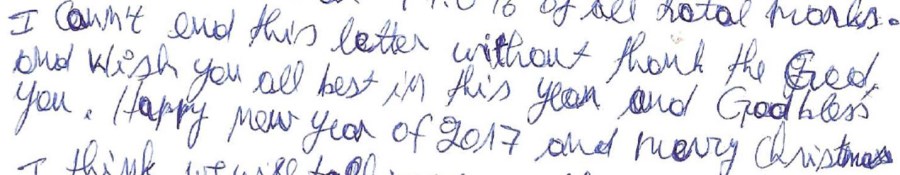 of all total marks.
I Can't end this letter without thank the God
and Wish you all best in this year and God bless
you. Happy new year of 2017 and merry Christmas
I think we will